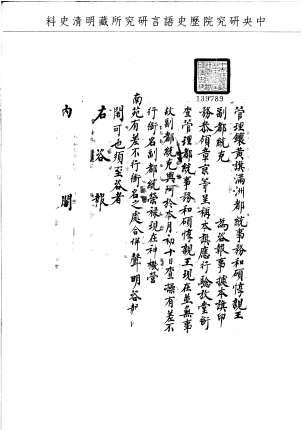 中央研究院歷史語言研究所藏明清史料
139789
管理鑲黃旗滿洲都統事務和碩惇親王
副都統克 為咨報事據本旗印
務參領章京等呈稱本旗應行驗放堂銜
查管理都統事務和碩惇親王現在並無事
故副都統克興阿於本月初十日查旗有差不
行銜名副都統營祿現在神機營
南苑有差不行銜名之處合併聲明咨
閣可也須至咨者
右咨報
內閣